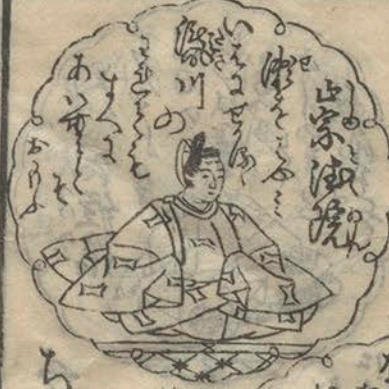 崇徳院
瀬をはやミ
いはにせかるゝ
瀧川の
われても
すゑに
あはむとそ
おもふ
ち